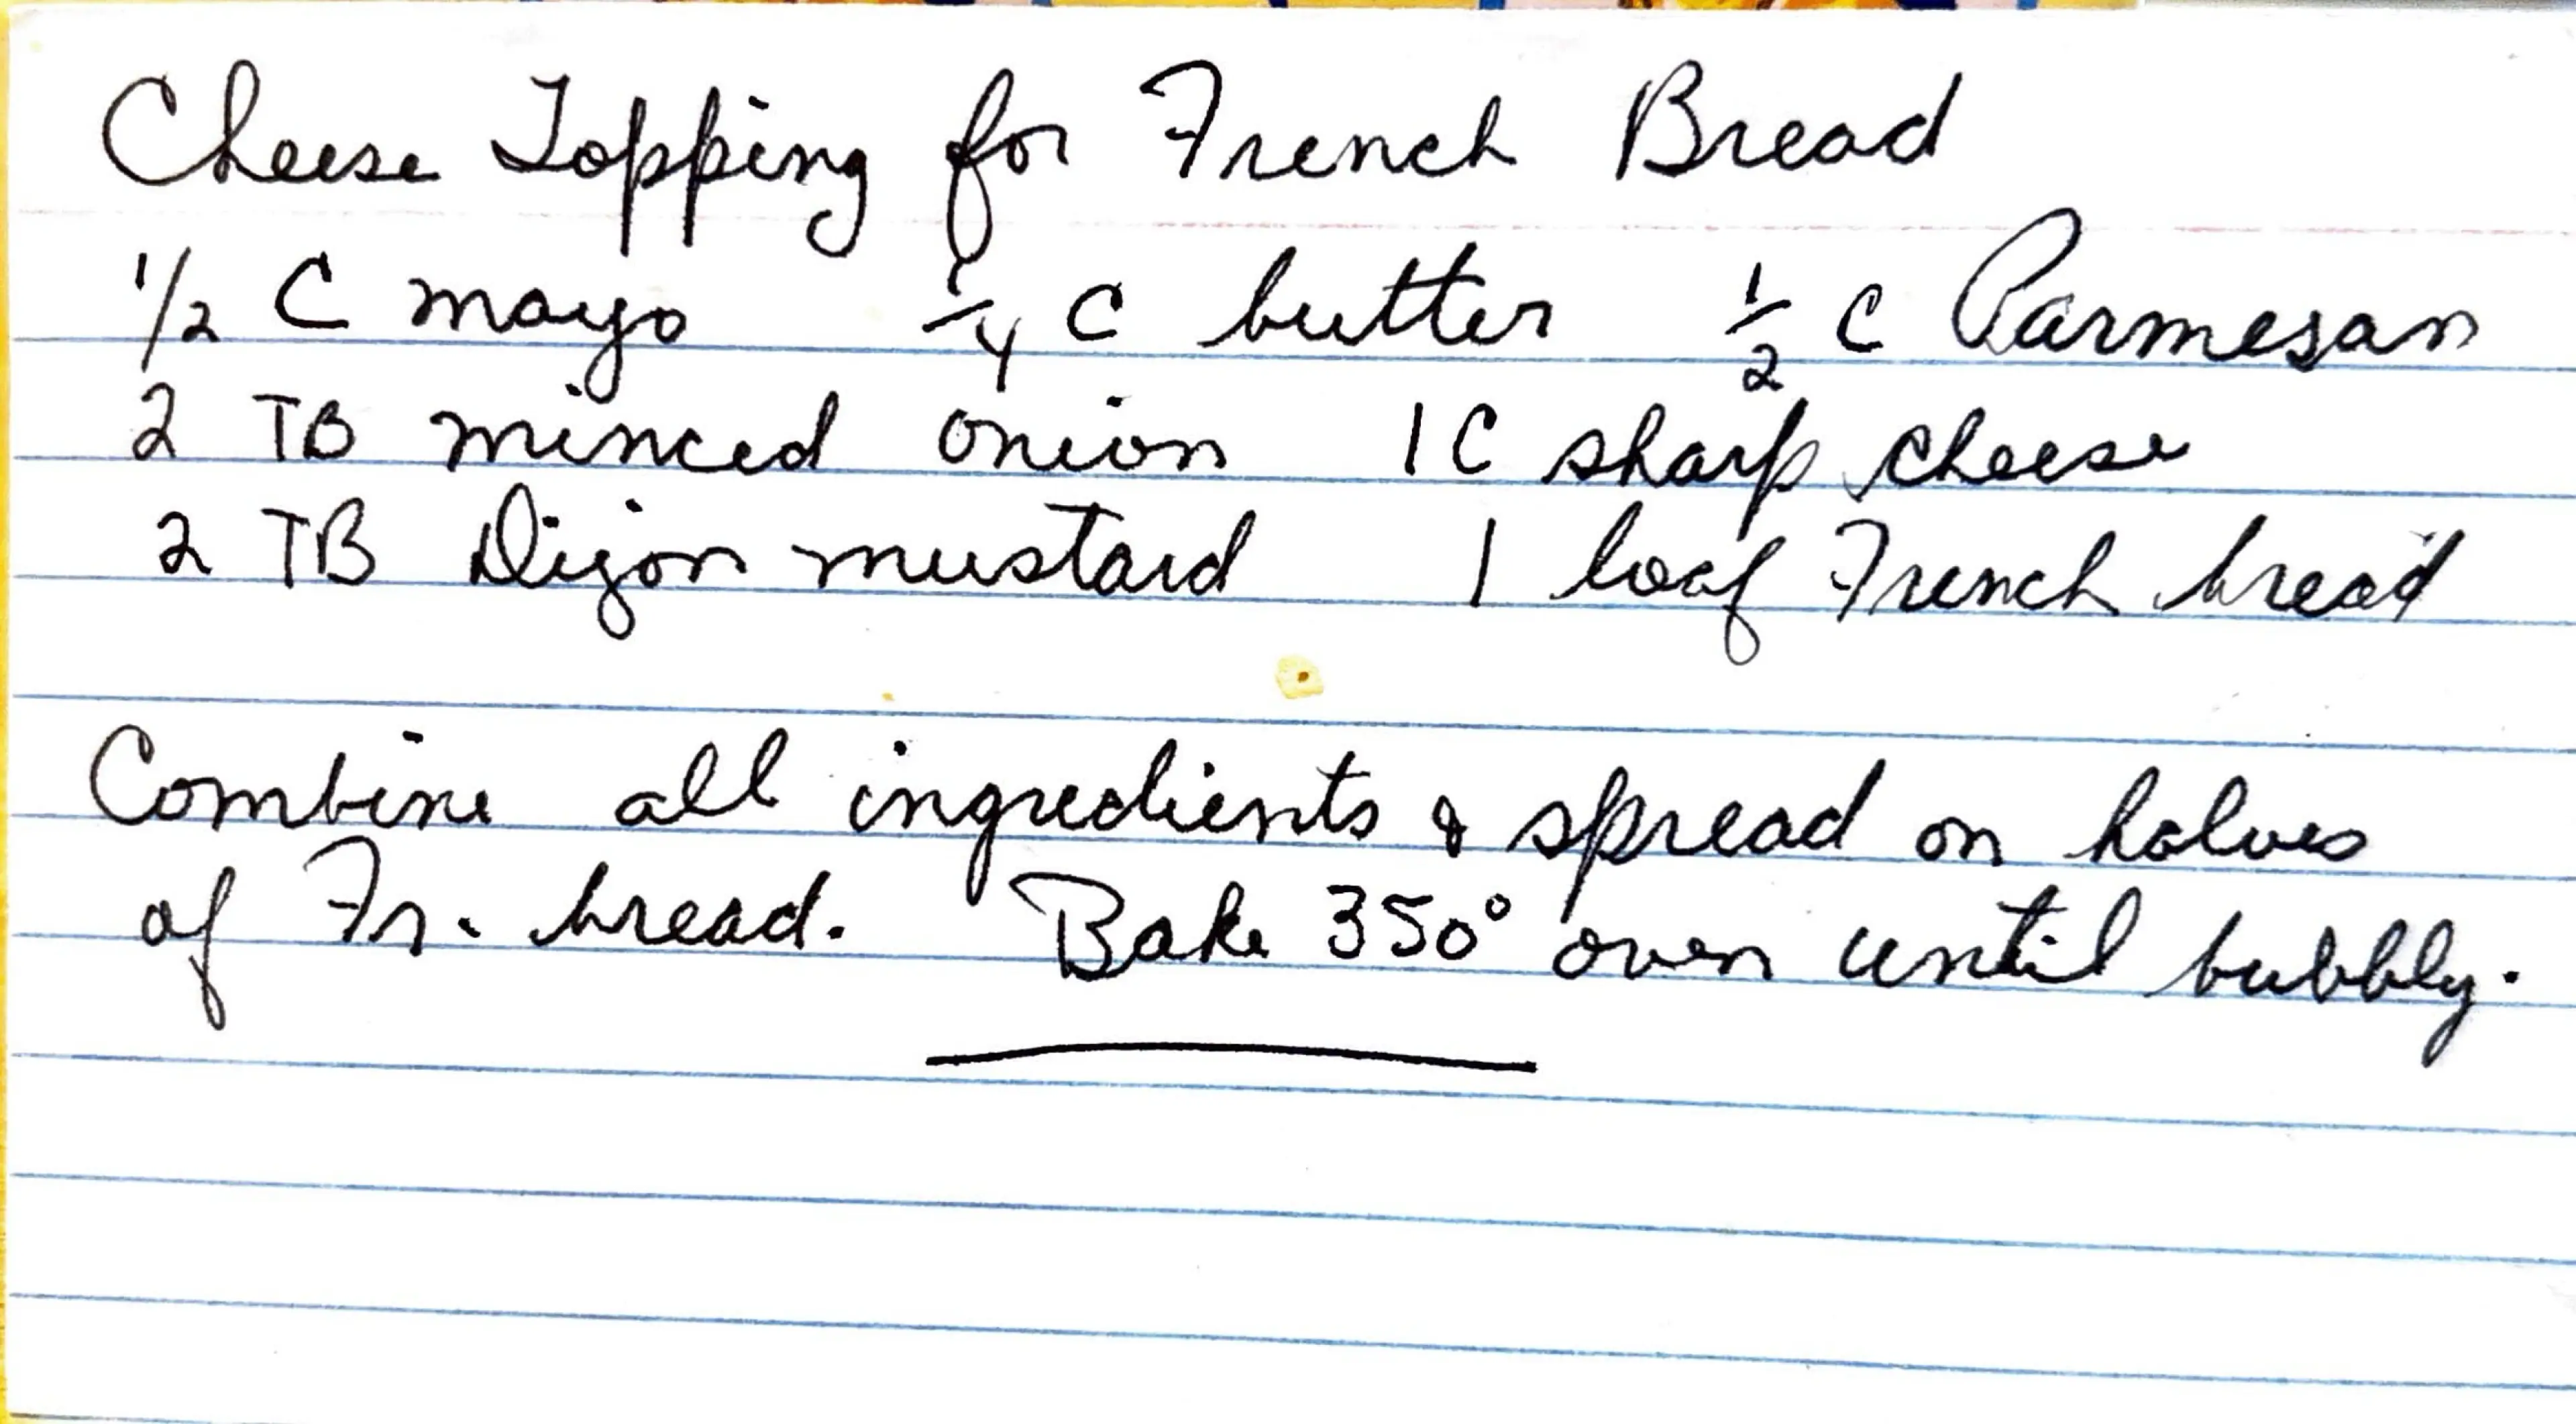 Cheese Topping for French Bread
1/2 C mayo 1/4 C butter 1/2 C Parmesan
2 TB minced onion 1 C sharp cheese
2 TB Dijon mustard 1 loaf French bread
Combine all ingredients & spread on halves
of Fr. bread. Bake 350° oven until bubbly.